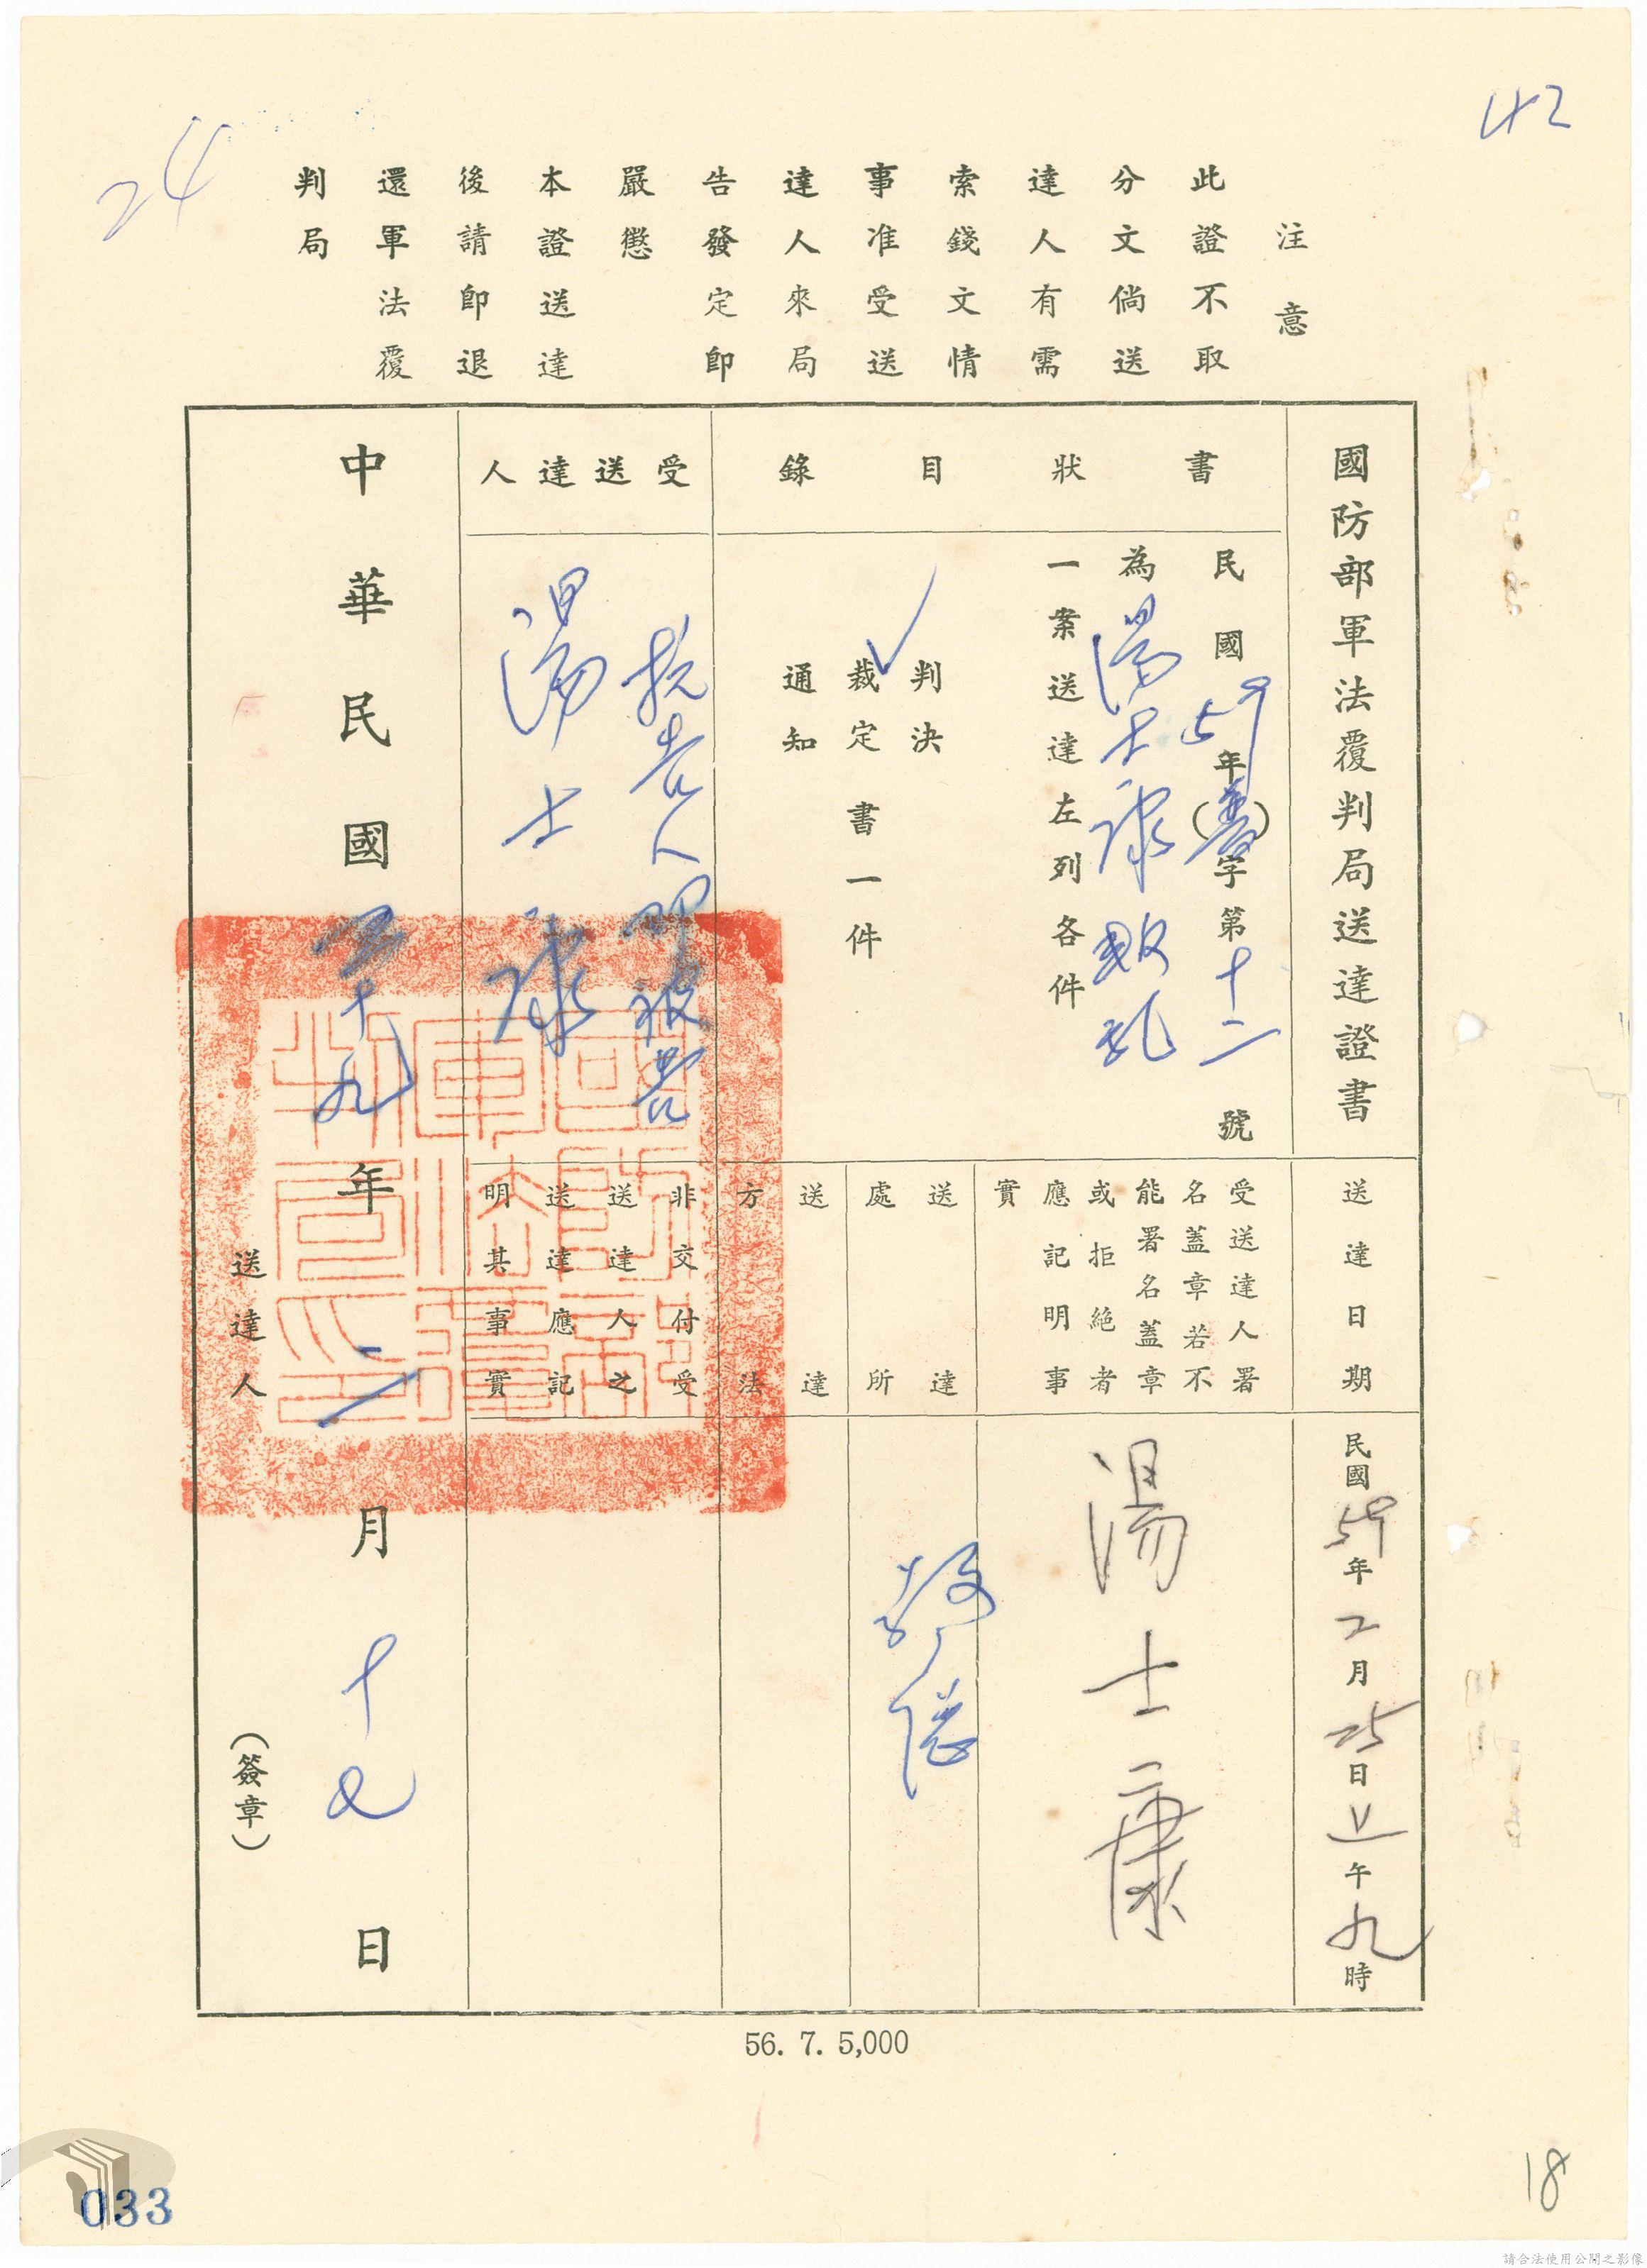 42
24
注意
此證不取
分文倘送
達人有需
索錢文情
事准受送
達人來局
告發定即
嚴懲
本證送達
後請即退
還軍法覆
判局
國防部軍法覆判局送達證書
書狀目錄
民國59年()字第十二號
為湯士康叛乱
一案送達左列各件
判決
裁定書一件
通知
受送達人
抗告人即被告
湯士康
送達日期
民國59年2月25日上午九時
受送達人署
名蓋章若不
能署名蓋章
或拒絕者
應記明事
實
湯士康
送達
處所
送達
方法
非交付受
送達人之
送達應記
明其事實
中華民國五十九年二月十七日
送達人(簽章)
國防部軍法覆判局印
56. 7. 5,000
033
18
請合法使用公開之影像